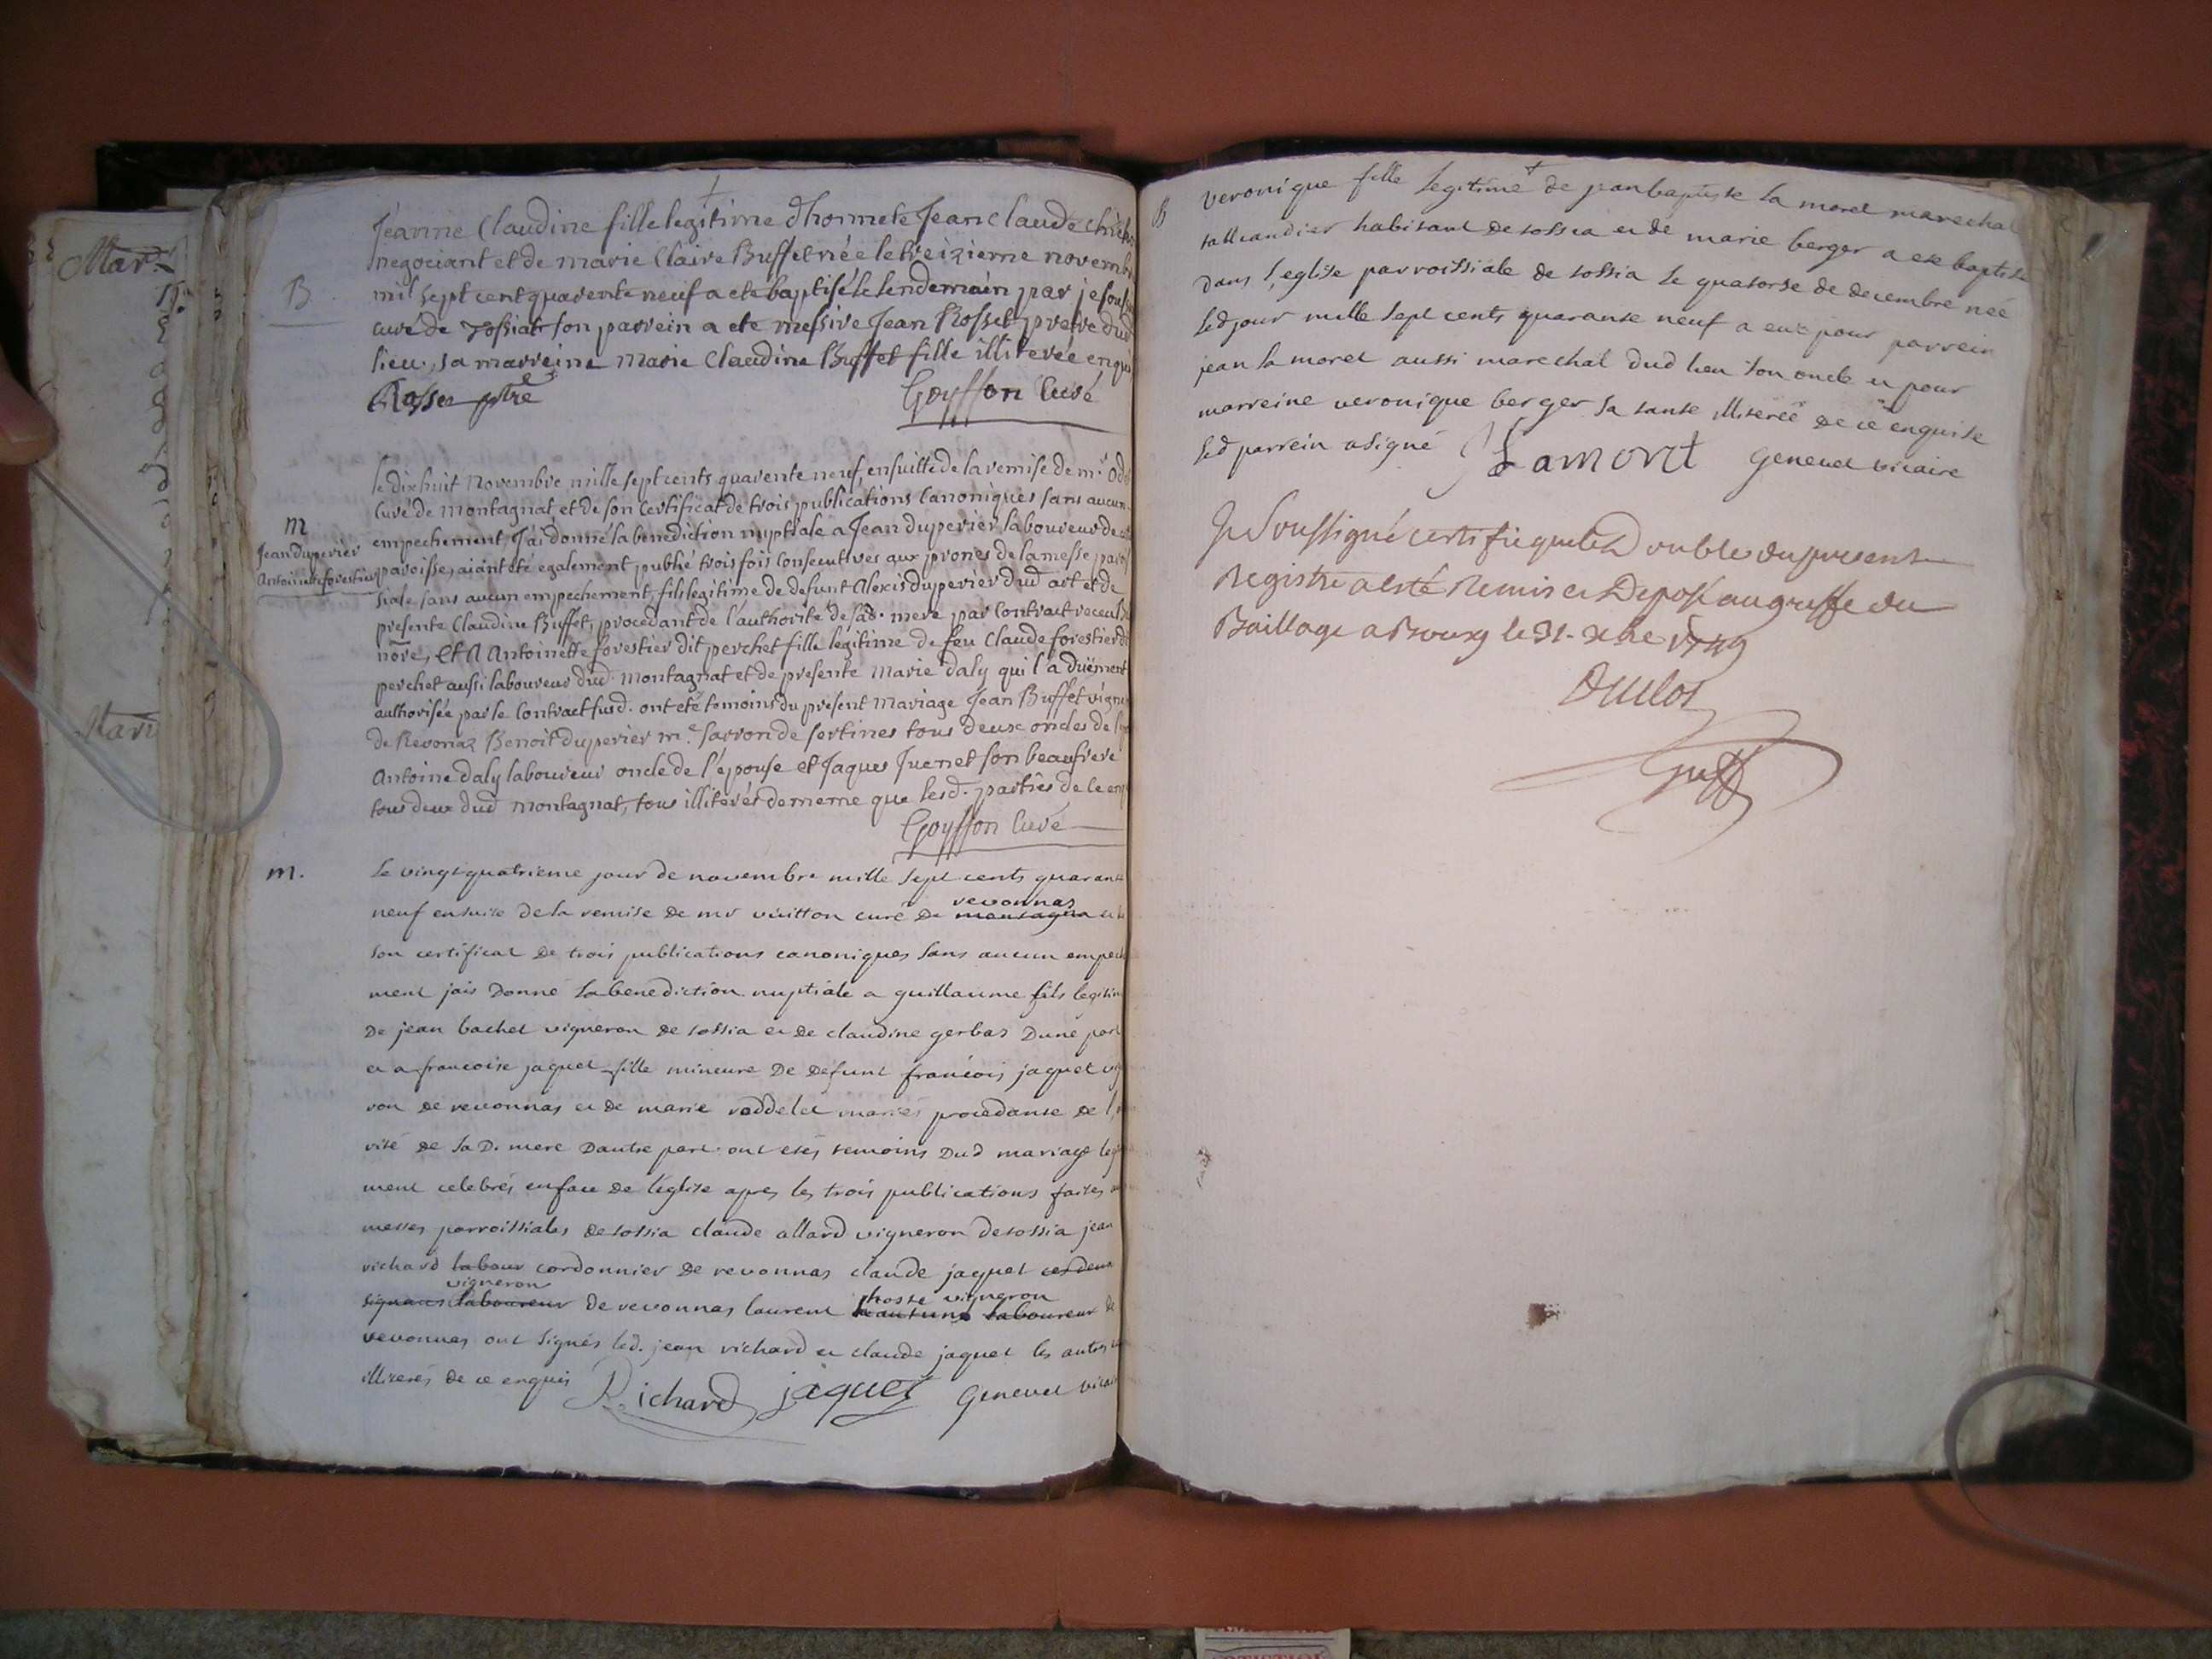 Jeanne Claudine fille legitime d'honnete Jean Claude
negociant et de marie Claire Buffet née le treizieme novemb
B
mil sept cent quarente neuf a ete baptisé le lendemain par je sous
curé de Tossiat son parrein a ete messire Jean Rosset pretre dud
lieu, sa marreine marie Claudine Buffet fille illiterée enqui
Rosset ptre Goyffon Curé
le dix huit novembre mille sept cents quarente neuf, ensuitte de la remise de mr.
curé de montagnat et de son certificat de trois publications canoniques sans aucun
m
empechement, J'ai donné la benediction nuptiale a Jean duperier laboureur de
Jean duperier
Antoinette forestier
paroisse, aiant été egalement publié trois fois consecutives aux prones de la messe parois
siale sans aucun empechement, fils legitime de defunt Alexis duperier dud art et de
presente Claudine Buffet, procedant de l'authorité de sad. mere par contract receu
nore, Et a Antoinette forestier dit perchet fille legitime de feu Claude forestier
perchet aussi laboureur dud. montagnat et de presente marie daly qui l'a duëment
authorisée par le contract susd. ont été temoins du present mariage Jean Buffet vigne
de Revonaz Benoit duperier me. sarron de sertines tous deux oncles de
Antoine daly laboureur oncle de l'epouse et Jaques Juenet son beaufrere
tous deux dud montagnat, tous illiterés de meme que lesd. parties de ce en
Goyffon Curé
m.
le vingt quatrieme jour de novembre mille sept cents quarant
revonnas
neuf ensuite de la remise de mr vuitton curé de montagna et
son certificat de trois publications canoniques sans aucun empech
ment jais donné la benediction nuptiale a guillaume fils legitim
de jean bachet vigneron de tossia et de claudine gerbas dune part
et a francoise jaquet fille mineure de defunt francois jaquet vig
ron de revonnas et de marie roddelet mariés procedante de l
rité de sa D. mere dautre part. ont etés temoins dud mariage leg
ment celebrés en face de l'eglise apres les trois publications faites
messes parroissiales de tossia claude allard vigneron de tossia jean
richard labour cordonnier de revonnas claude jaquet ces deux
vigneron hoste vigneron
signares laboureur de revonnas laurent laboureur de
revonnas ont signés led. jean richard et claude jaquet les autres
illiterés de ce enquis Richard jaquet Genevet vicai
B
veronique fille legitime de jean baptiste la moret marechal
tallicandier habitant de tossia et de marie berger a ete baptisé
dans l'eglise parroissiale de tossia le quatorse de decembre née
led jour mille sept cents quarante neuf a eut pour parrein
jean la moret aussi marechal dud lieu son oncle et pour
marreine veronique berger sa tante illiterée de ce enquise
led parrein a signé J Lamoret Genevet vicaire
Je Soussigné certifie que le Double du present
Registre a esté Remis et Deposé au greffe du
Baillage a Bourg le 31. xbre 1749
Duclos
Greff